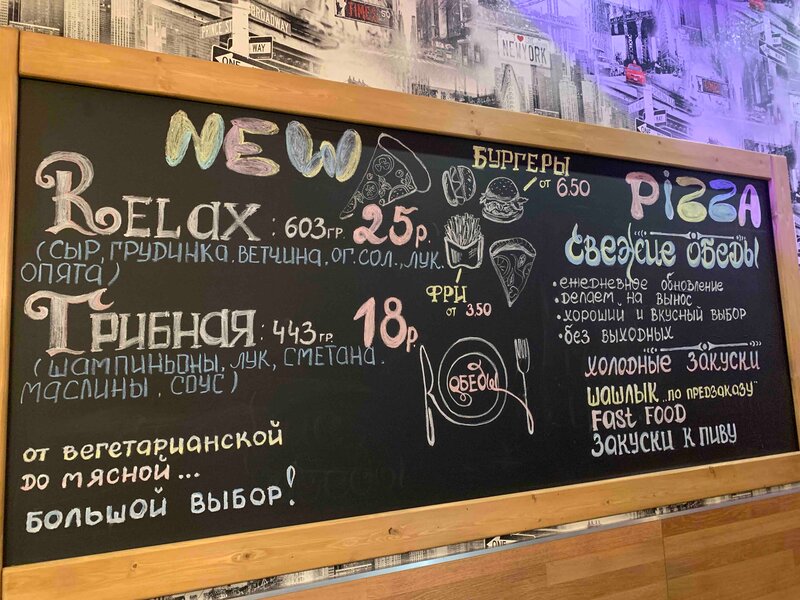 BROADWAY
WAY
ONE
TIMES
NEW YORK
NEW
RELAX : 603 ГР. 25 р.
(СЫР, ГРУДИНКА, ВЕТЧИНА, ОГ. СОЛ., ЛУК,
ОПЯТА)
ГРИБНАЯ : 443 ГР. 18 р.
(ШАМПИНЬОНЫ, ЛУК, СМЕТАНА,
МАСЛИНЫ, СОУС)
ОТ ВЕГЕТАРИАНСКОЙ
ДО МЯСНОЙ...
БОЛЬШОЙ ВЫБОР!
БУРГЕРЫ
ОТ 6.50
ФРИ
ОТ 3.50
ОБЕДЫ
PIZZA
СВЕЖИЕ ОБЕДЫ
• ЕЖЕДНЕВНОЕ ОБНОВЛЕНИЕ
• ДЕЛАЕМ НА ВЫНОС
• ХОРОШИЙ И ВКУСНЫЙ ВЫБОР
• БЕЗ ВЫХОДНЫХ
ХОЛОДНЫЕ ЗАКУСКИ
ШАШЛЫК „ПО ПРЕДЗАКАЗУ"
FAST FOOD
ЗАКУСКИ К ПИВУ